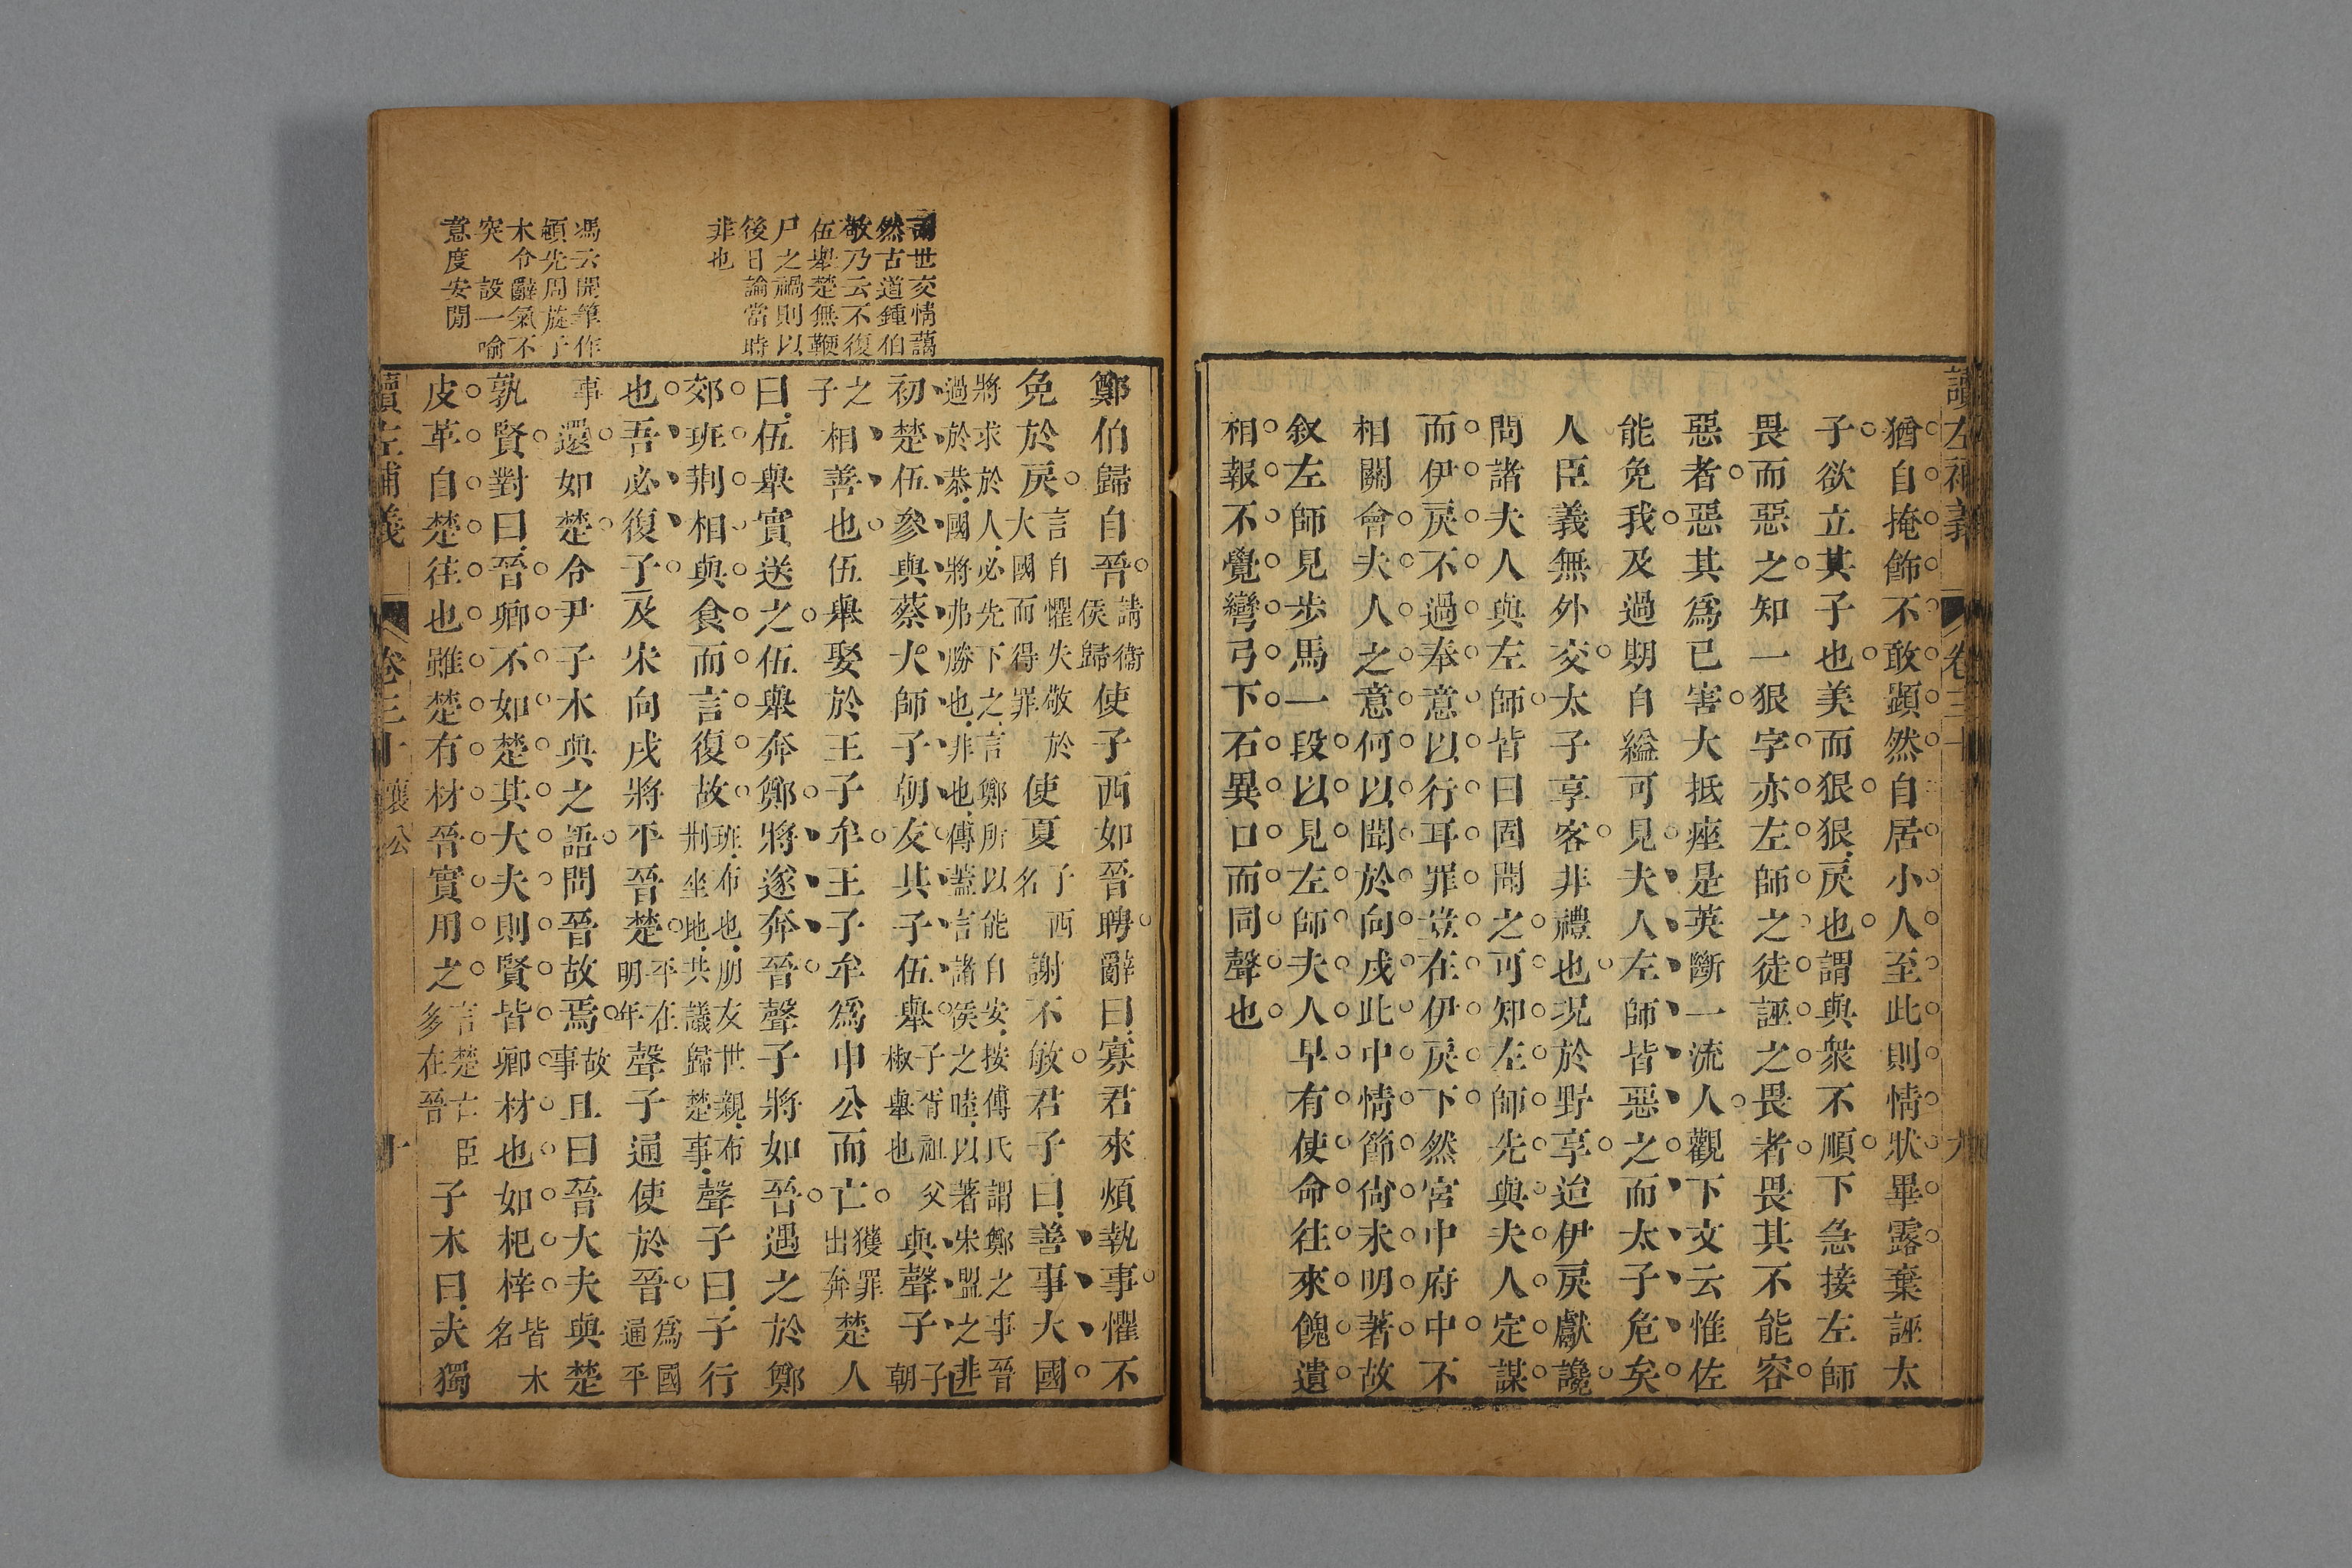 讀左補義 卷三十 九
猶自掩飾不敢顯然自居小人至此則情狀畢露棄誣太
子欲立其子也美而狠狠戾也謂與衆不順下急接左師
畏而惡之知一狠字亦左師之徒誣之畏者畏其不能容
惡者惡其爲已害大抵痤是英斷一流人觀下文云惟佐
能免我及過期自縊可見夫人左師皆惡之而太子危矣
人臣義無外交太子享客非禮也况於野享迨伊戾獻讒
問諸夫人與左師皆曰固聞之可知左師先與夫人定謀
而伊戾不過奉意以行耳罪豈在伊戾下然宮中府中不
相關會夫人之意何以聞於向戌此中情節尙未明著故
叙左師見步馬一段以見左師夫人早有使命往來餽遺
相報不覺彎弓下石異口而同聲也
世交情藹
然古道鍾伯
敬乃云不復
伍舉楚無鞭
尸之禍則以
後日論當時
非也
馮云開筆作
頓先周旋子
木令辭氣不
突 設一喻
意度安閒
鄭伯歸自晉請衞侯歸使子西如晉聘辭曰寡君來煩執事懼不
免於戾言自懼失敬於大國而得罪使夏子西名謝不敏君子曰善事大國
將求於人必先下之言鄭所以能自安按傅氏謂鄭之事晉
過於恭國將弗勝也非也傳蓋言諸侯之睦以著宋盟之非
初楚伍參與蔡太師子朝友其子伍舉子胥祖父椒舉也與聲子子朝
之子相善也伍舉娶於王子牟王子牟爲申公而亡獲罪出奔楚人
曰伍舉實送之伍舉奔鄭將遂奔晉聲子將如晉遇之於鄭
郊班荆相與食而言復故班布也朋友世親布荆坐地共議歸楚事聲子曰子行
也吾必復子及宋向戌將平晉楚平在明年聲子通使於晉爲國通平
事還如楚令尹子木與之語問晉故焉故事且曰晉大夫與楚
孰賢對曰晉卿不如楚其大夫則賢皆卿材也如杞梓皆木名
皮革自楚往也雖楚有材晉實用之言楚亡臣多在晉子木曰夫獨
讀左補義 卷三十 襄公 十